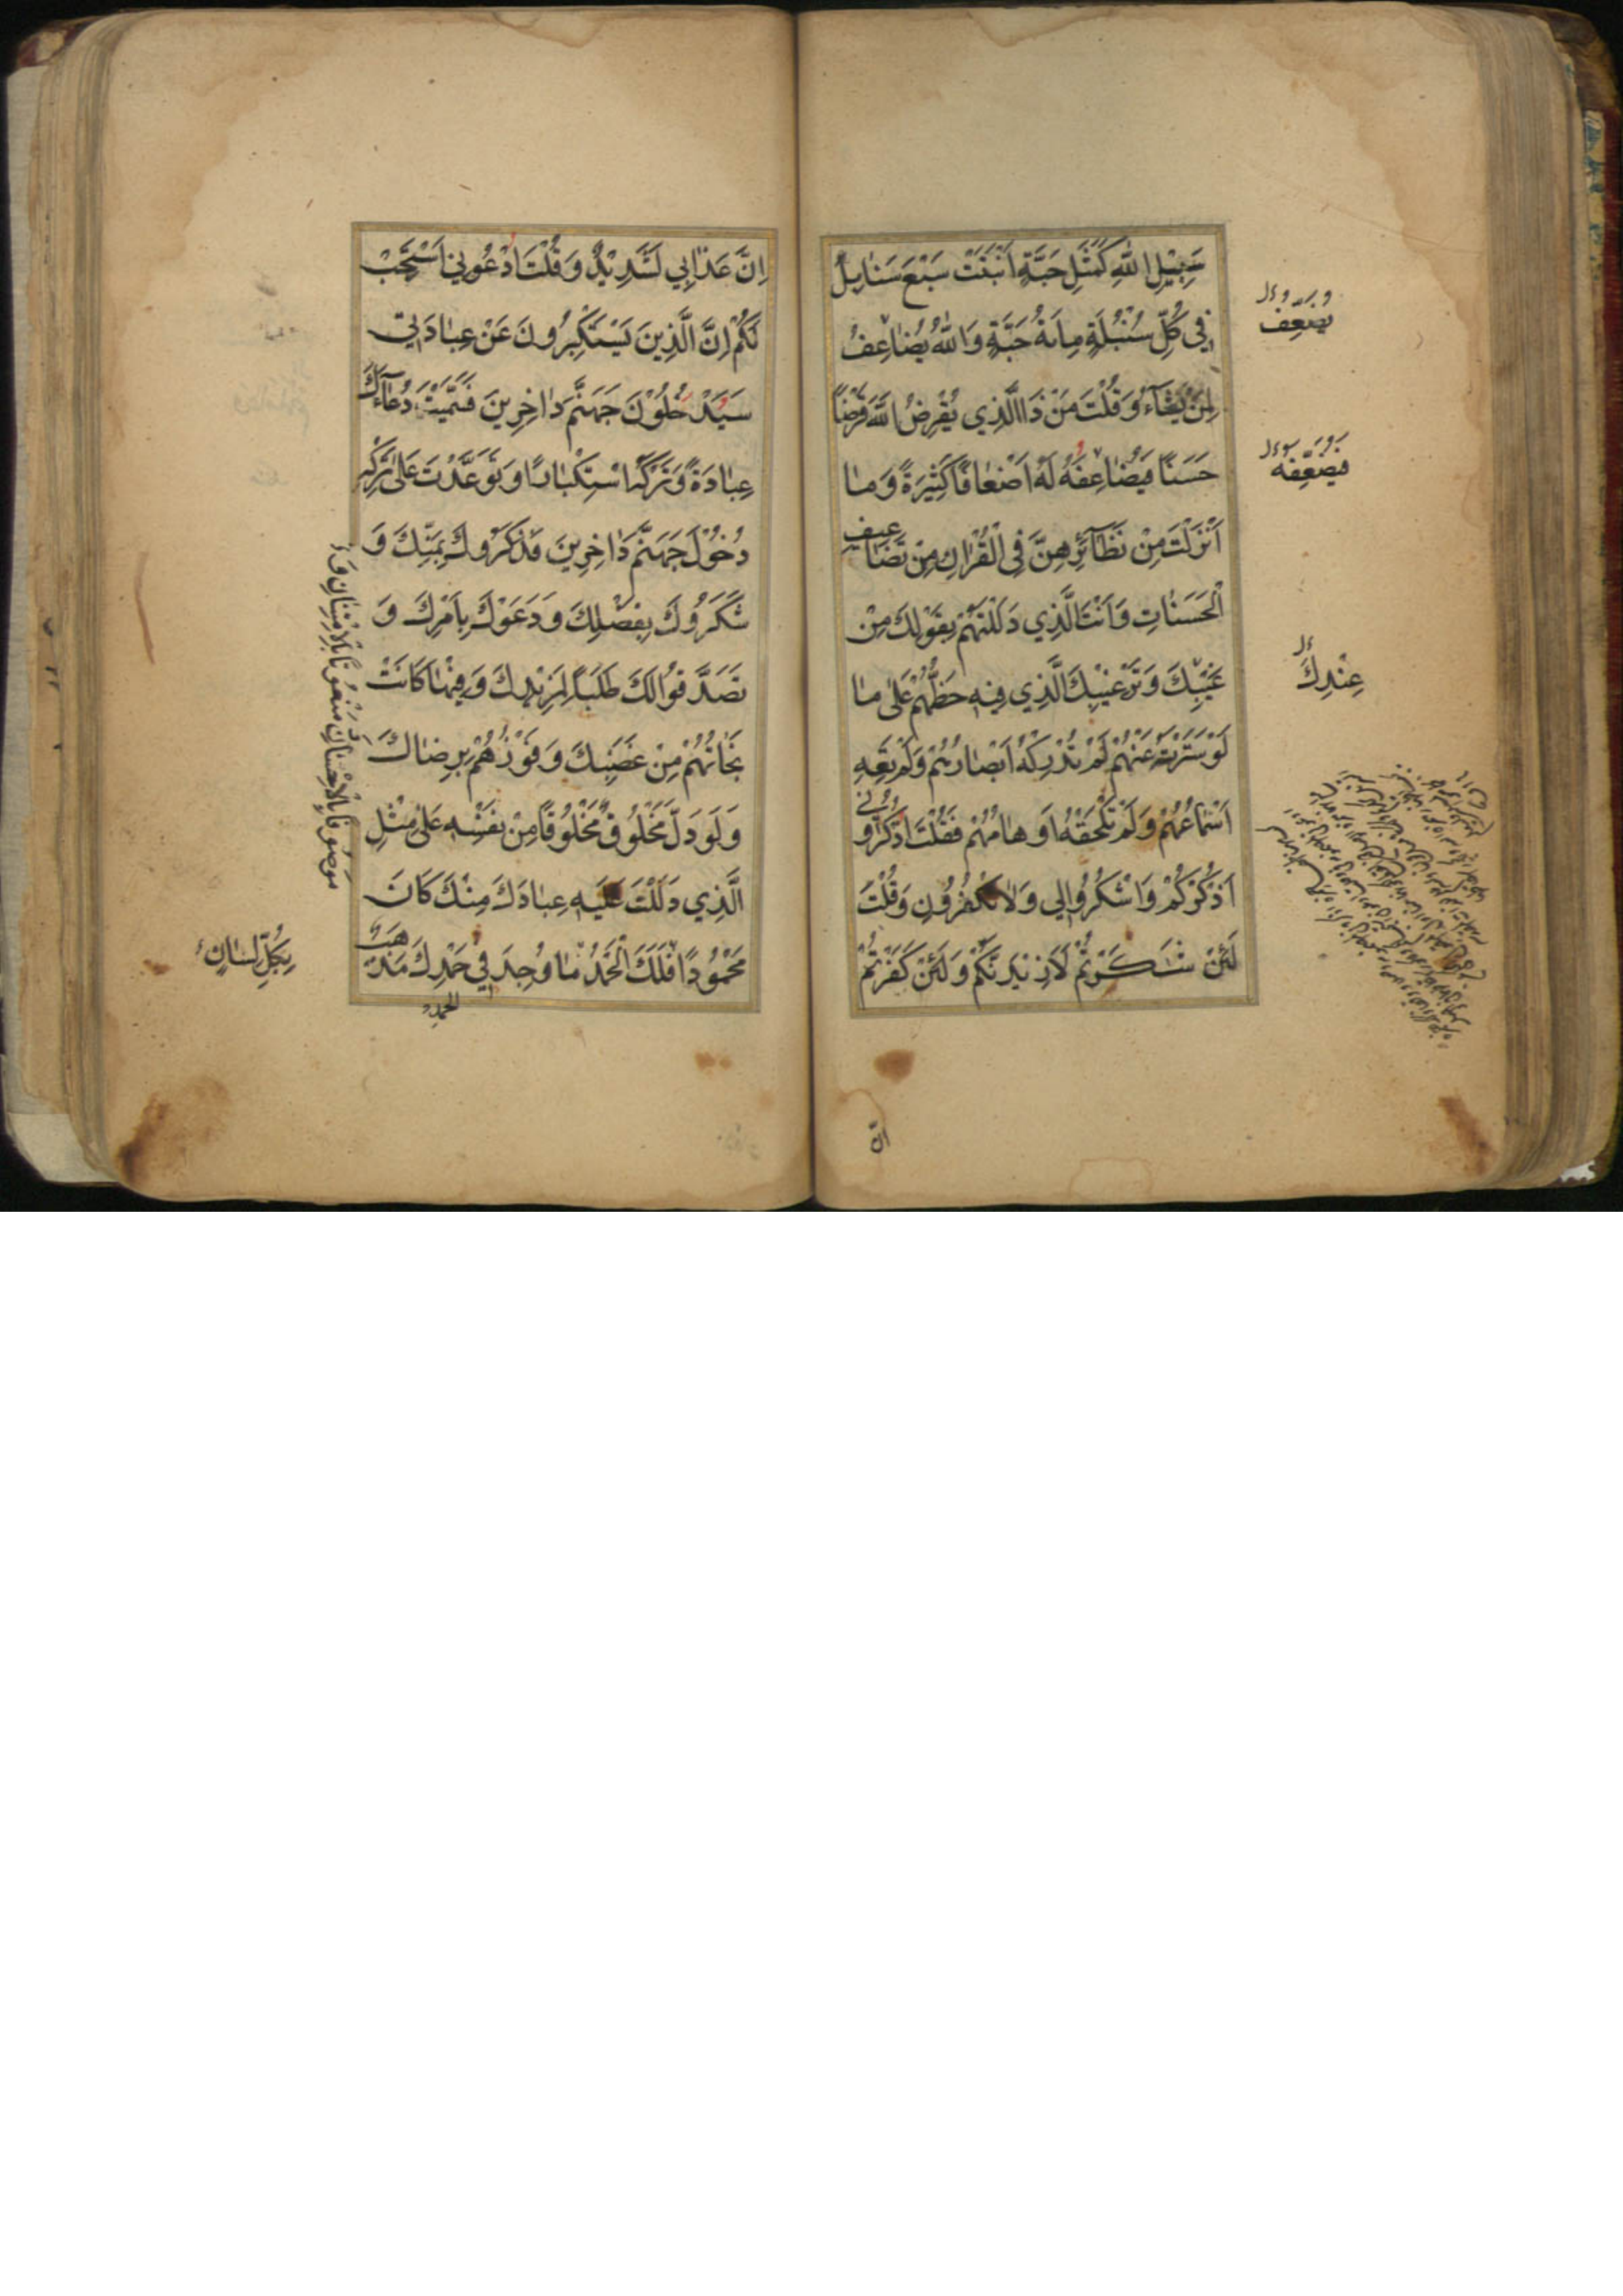 سَبِيْلِ اللّٰهِ كَمَثَلِ حَبَّةٍ اَنْبَتَتْ سَبْعَ سَنَابِلَ
فِي كُلِّ سُنْبُلَةٍ مِائَةُ حَبَّةٍ وَاللّٰهُ يُضَاعِفُ
لِمَنْ يَشَآءُ وَقُلْتَ مَنْ ذَا الَّذِي يُقْرِضُ اللّٰهَ قَرْضًا
حَسَنًا فَيُضَاعِفَهُ لَهُ اَضْعَافًا كَثِيْرَةً وَمَا
اَنْزَلْتَ مِنْ نَظَآئِرِهِنَّ فِي الْقُرْاٰنِ مِنْ تَضَاعِيفِ
الْحَسَنَاتِ وَاَنْتَ الَّذِي دَلَلْتَهُمْ بِقَوْلِكَ مِنْ
غَيْبِكَ وَتَرْغِيْبِكَ الَّذِي فِيْهِ حَظُّهُمْ عَلٰى مَا
لَوْ سَتَرْتَهُ عَنْهُمْ لَمْ تُدْرِكْهُ اَبْصَارُهُمْ وَلَمْ تَعِهِ
اَسْمَاعُهُمْ وَلَمْ تَلْحَقْهُ اَوْهَامُهُمْ فَقُلْتَ اذْكُرُونِي
اَذْكُرْكُمْ وَاشْكُرُوا لِي وَلَا تَكْفُرُونِ وَقُلْتَ
لَئِنْ شَكَرْتُمْ لَاَزِيْدَنَّكُمْ وَلَئِنْ كَفَرْتُمْ
يُضَعِّفُ
فَيُضَعِّفَهُ
عِنْدِكَ
اِنَّ
اِنَّ عَذَابِي لَشَدِيْدٌ وَقُلْتَ ادْعُونِي اَسْتَجِبْ
لَكُمْ اِنَّ الَّذِينَ يَسْتَكْبِرُونَ عَنْ عِبَادَتِي
سَيَدْخُلُوْنَ جَهَنَّمَ دَاخِرِينَ فَسَمَّيْتَ دُعَآءَكَ
عِبَادَةً وَتَرْكَهُ اسْتِكْبَارًا وَتَوَعَّدْتَ عَلٰى تَرْكِهِ
دُخُوْلَ جَهَنَّمَ دَاخِرِينَ فَذَكَرُوكَ بِمَنِّكَ وَ
شَكَرُوكَ بِفَضْلِكَ وَدَعَوْكَ بِاَمْرِكَ وَ
تَصَدَّقُوا لَكَ طَلَبًا لِمَزِيْدِكَ وَفِيْهَا كَانَتْ
نَجَاتُهُمْ مِنْ غَضَبِكَ وَفَوْزُهُمْ بِرِضَاكَ
وَلَوْ دَلَّ مَخْلُوقٌ مَخْلُوْقًا مِنْ نَفْسِهِ عَلٰى مِثْلِ
الَّذِي دَلَلْتَ عَلَيْهِ عِبَادَكَ مِنْكَ كَانَ
مَحْمُوْدًا فَلَكَ الْحَمْدُ مَا وُجِدَ فِي حَمْدِكَ مَذْهَبٌ
مَوْصُوفًا بِالْاِحْسَانِ مَنْعُوتًا بِالْاِمْتِنَانِ وَ
بِكُلِّ لِسَانٍ